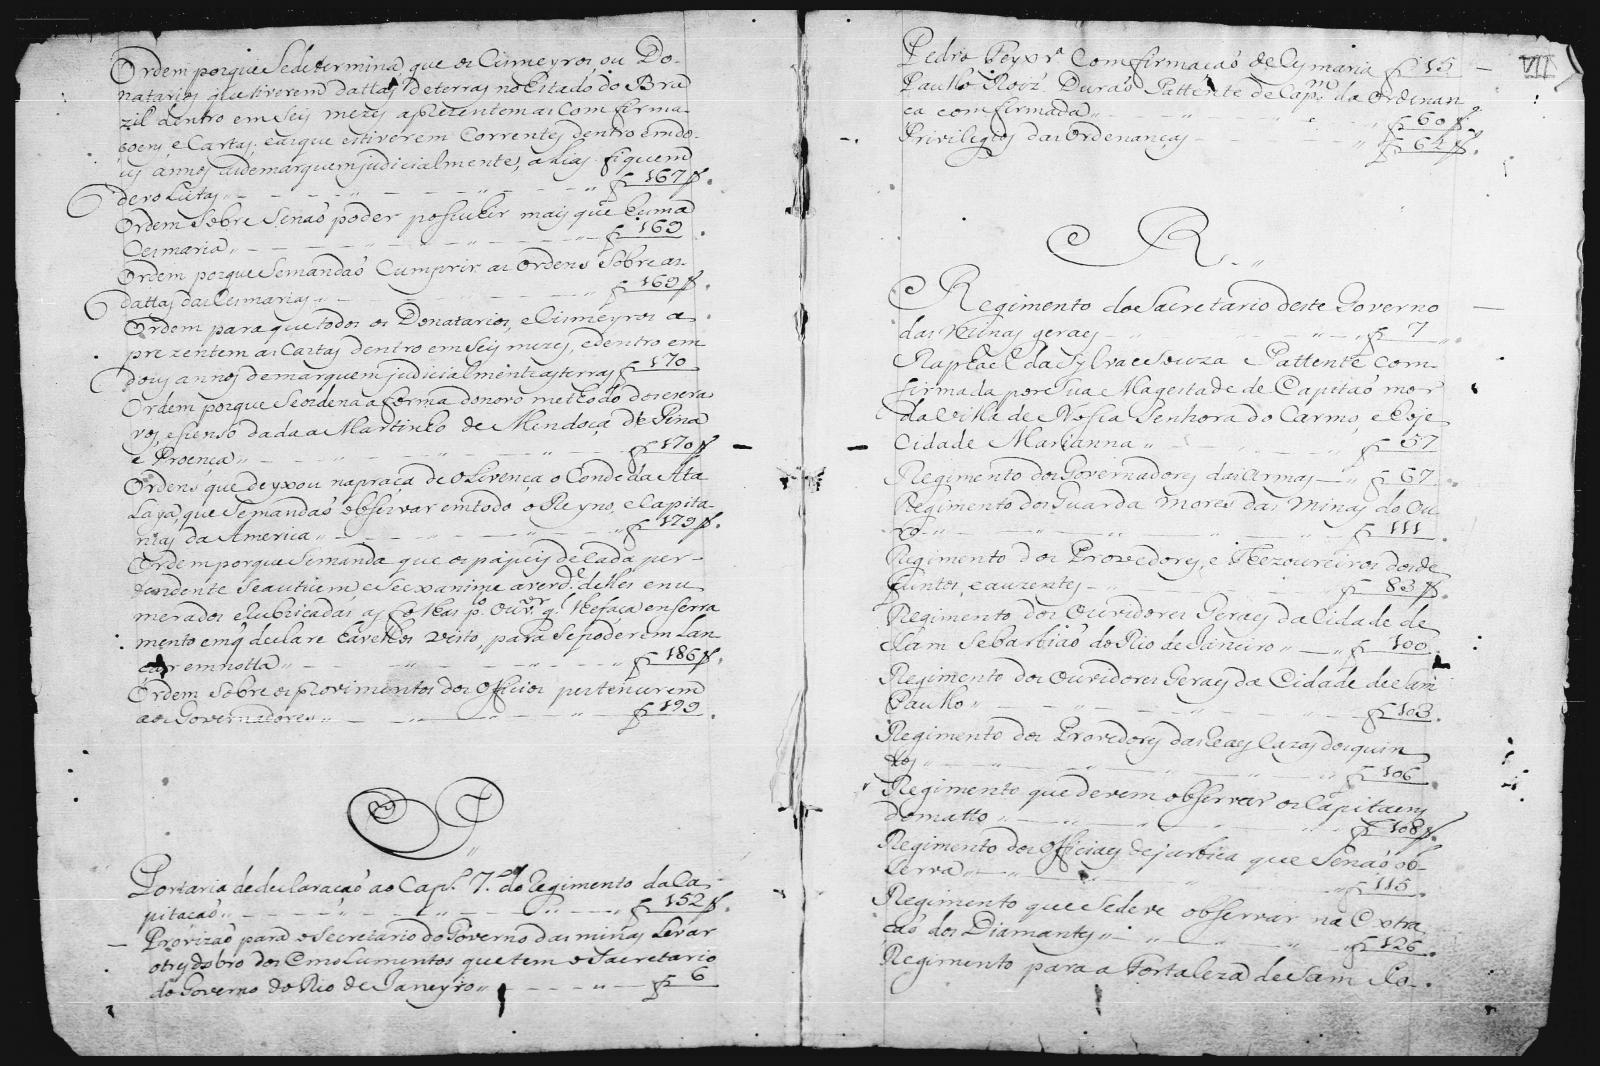 Ordem porque Sedetermina, que os Cismeyros, ou Do-
natarios que tiverem dattas deterras no Estado do Bra
zil dentro em Seis mezes aprezentem as Comfirma-
coens e Cartas; easque estiverem Correntes dentro em do-
us annos as demarquem judicialmente, alias fiquem
devolutas f 167 v.
Ordem Sobre Senaõ poder possuhir mais que huma
Cesmaria f 169
Ordem porque Semandaõ Cumprir as Ordens Sobre as
dattas das Cesmarias f 169 v.
Ordem para que todos os Donatarios, e Cismeyros a
prezentem as Cartas dentro em Seis mezes, edentro em
dous annos demarquem judicialmente as terras f 170
Ordem porque Seordena a forma do novo methodo
vos, e dada a Martinho de Mendoça de Pina
e Proença f 170 v
Ordens que deyxou na praça de Olivença o Conde da Ata
Laya, que Semandaõ observar em todo o Reyno, e Capita-
nias da America f 179 v.
Ordem porque Semanda que os papeis de Cada per-
tendente Seautuem, e Seexanime a verd.e delles enu
merados e Rubricadas as folhas p.o Ouv.or q. lhe faça enserra
mento em q declare havellos visto, para Sepoderem Lan
çar em notta f 186 v.
Ordem Sobre os provimentos dos Officios pertencerem
aos Governadores f 199
P
Portaria de declaraçaõ ao Cap.o 7.o do Regimento da Ca-
pitaçaõ f 152 v.
Provizaõ para o Secretario do Governo das minas Levar
o tresdobro dos Emolumentos que tem o Sacretario
do Governo do Rio de Janeyro f 6
VII
Pedro Teyxr.a Comfirmacaõ de Cymaria f 15
Paulho Roiz' Duraõ Pattente de Cap.m da Ordenan
ça comfirmada f 60 v.
Privilegios das Ordenanças f 64 v.
R
Regimento do Sacretario deste Governo
das Minas geraes f 7
Raphael da Sylva e Souza Pattente com-
firmada por Sua Magestade de Capitaõ mor
da Villa de Nossa Senhora do Carmo, e hoje
Cidade Marianna f 57
Regimento dos Governadores das Armas f 67
Regimento dos Guarda Mores das Minas do Ou
ro f 111
Regimento dos Provedores, e Thezoureiros dos de
funtos, e auzentes f 83 v.
Regimento dos Ouvidores Geraes da Cidade de
Sam Sebastiaõ do Rio de Janeiro f 100
Regimento dos Ouvidores Geraes da Cidade de Sam
Paulho f 103
Regimento dos Provedores das Reaes Cazas dos quin
tos f 106
Regimento que devem observar os Capitaens
do matto f 108 v.
Regimento dos Officiaes de justiça que Senaõ ob-
serva f 115
Regimento que Sedeve observar na Extra
çaõ dos Diamantes f 126
Regimento para a Fortaleza de Sam Jo-